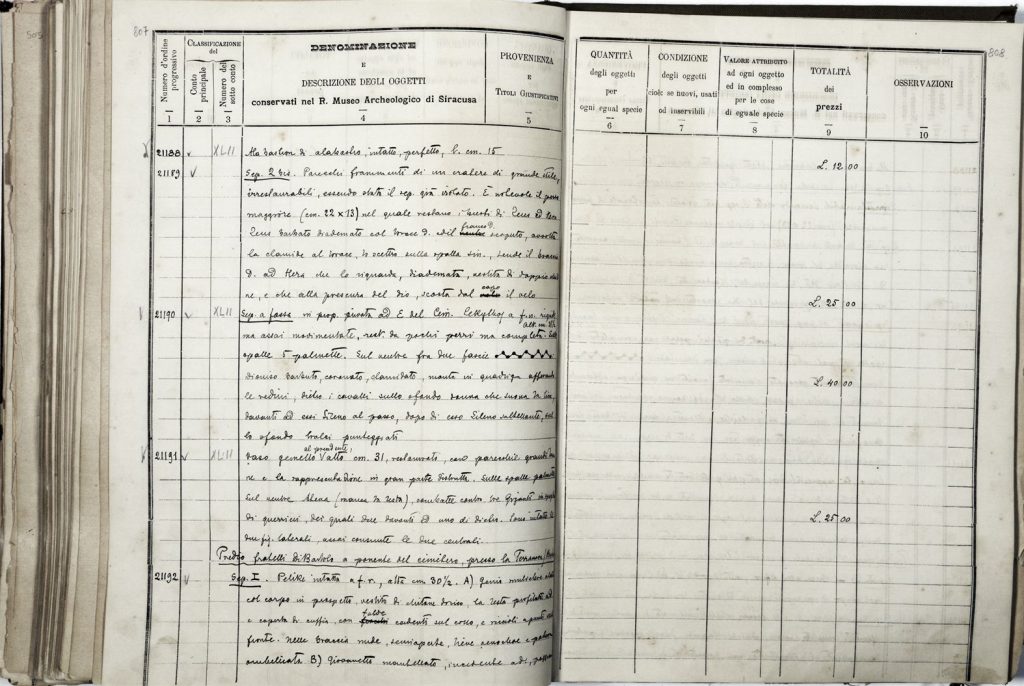 807
CLASSIFICAZIONE del
Numero d'ordine progressivo
Conto principale
Numero del sotto conto
DENOMINAZIONE
E
DESCRIZIONE DEGLI OGGETTI
conservati nel R. Museo Archeologico di Siracusa
PROVENIENZA
E
TITOLI GIUSTIFICATIVI
1 2 3 4 5
21188 XLII Alabastron di alabastro, intatto, perfetto, l. cm. 15
21189 Sep. 2 bis. Parecchi frammenti di un cratere di grande stile,
irrestaurabili, essendo stato il sep. già violato. È notevole il pezzo
maggiore (cm. 22 x 13) nel quale restano i busti di Zeus ed Hera
Zeus barbato diademato col torace D. ed il fianco D. scoperto, avvolto
la clamide al torace, lo scettro sulla spalla sin., tende il braccio
D. ad Hera che lo riguarda, diademata, vestita di doppio
ne, e che alla presenza del dio, scosta dal capo il velo
21190 XLII Sep. a fossa in prop. privata ad E del Cim. a f.n.
ma assai movimentate, rest. da pochi pezzi ma completa. Sulle
spalle 5 palmette. Sul ventre fra due fascie
Dioniso barbuto, coronato, clamidato, monta in quadriga afferrando
le redini, dietro i cavalli sullo sfondo donna che suona la lira,
davanti ad essi Sileno al passo, dopo di esso Sileno saltellante, sul-
lo sfondo tralci punteggiati
21191 XLII Vaso gemello al precedente, alto cm. 31, restaurato, con parecchie
ne e la rappresentazione in gran parte distrutta. Sulle spalle palmette
Sul ventre Atena (manca la testa), combatte contro tre Giganti in
di guerrieri, dei quali due davanti ed uno di dietro. Sono intatte le
due fig. laterali, assai consunte le due centrali.
Predio fratelli Di Bartolo a ponente del cimitero, presso la
21192 Sep. I. Pelike intatta a f.r., alta cm 30½. A) Genio muliebre
col corpo in prospetto, vestito di chitone dorico, la testa profilata
e coperta di cuffia, con falde cadenti sul collo, e riccioli
fronte. Nelle braccia nude, semiaperte, tiene oenochoe e patera
ombelicata B) Giovanetto mantellato, incedente a D.,
808
QUANTITÀ
degli oggetti
per
ogni egual specie
6
CONDIZIONE
degli oggetti
cioè: se nuovi, usati
od inservibili
7
VALORE ATTRIBUITO
ad ogni oggetto
ed in complesso
per le cose
di eguale specie
8
TOTALITÀ
dei
prezzi
9
OSSERVAZIONI
10
L. 12 00
L. 25 00
L. 40 00
L. 25 00